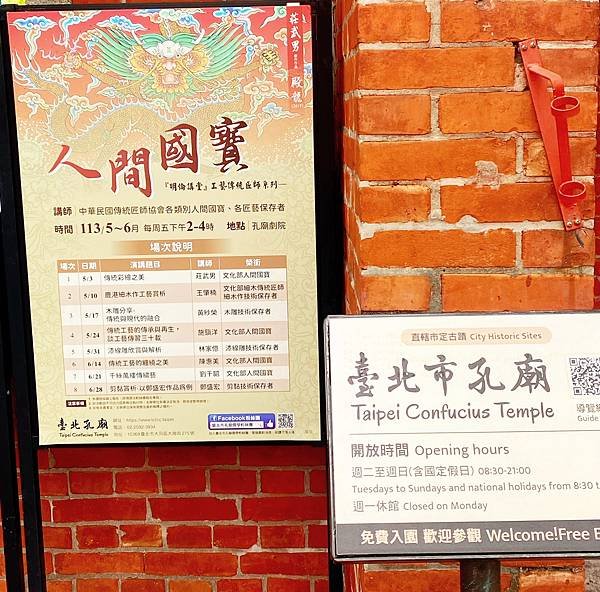 莊武男
殿龍
人間國寶
『明倫講堂』工藝傳統匠師系列—
講師 中華民國傳統匠師協會各類別人間國寶、各匠藝保存者
時間 113/5~6月 每周五下午2-4時 地點 孔廟劇院
場次說明
場次 日期 演講題目 講師 榮銜
1 5/3 傳統彩繪之美 莊武男 文化部人間國寶
2 5/10 鹿港細木作工藝賞析 王肇楠 文化部細木傳統匠師 細木作技術保存者
3 5/17 木雕分享: 傳統與現代的融合 黃紗榮 木雕技術保存者
4 5/24 傳統工藝的傳承與再生, 談工藝傳習三十載 施鎮洋 文化部人間國寶
5 5/31 漆線雕欣賞與解析 林家億 漆線雕技術保存者
6 6/14 傳統工藝的纏繞之美 陳惠美 文化部人間國寶
7 6/21 千絲萬縷傳繡藝 劉千韶 文化部人間國寶
8 6/28 剪黏賞析-以鄭盛宏作品為例 鄭盛宏 剪黏技術保存者
臺北孔廟
Taipei Confucius Temple
Facebook粉絲團
直轄市定古蹟 City Historic Sites
臺北市孔廟
Taipei Confucius Temple
Guide
開放時間 Opening hours
週二至週日(含國定假日) 08:30-21:00
Tuesdays to Sundays and national holidays from 8:30 t
週一休館 Closed on Monday
免費入園 歡迎參觀 Welcome!Free E